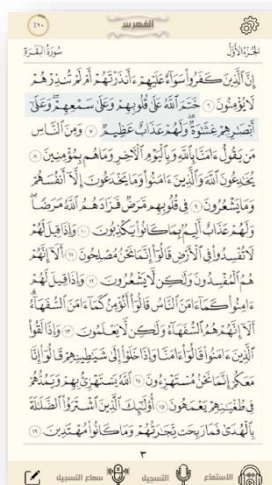 الفهرس
الجزء الأول
سورة البقرة
إِنَّ الَّذِينَ كَفَرُوا سَوَاءٌ عَلَيْهِمْ ءَأَنذَرْتَهُمْ أَمْ لَمْ تُنذِرْهُمْ
لَا يُؤْمِنُونَ ٦ خَتَمَ اللَّهُ عَلَىٰ قُلُوبِهِمْ وَعَلَىٰ سَمْعِهِمْ ۖ وَعَلَىٰ
أَبْصَارِهِمْ غِشَاوَةٌ ۖ وَلَهُمْ عَذَابٌ عَظِيمٌ ٧ وَمِنَ النَّاسِ
مَن يَقُولُ ءَامَنَّا بِاللَّهِ وَبِالْيَوْمِ الْآخِرِ وَمَا هُم بِمُؤْمِنِينَ ٨
يُخَادِعُونَ اللَّهَ وَالَّذِينَ ءَامَنُوا وَمَا يَخْدَعُونَ إِلَّا أَنفُسَهُمْ
وَمَا يَشْعُرُونَ ٩ فِي قُلُوبِهِم مَّرَضٌ فَزَادَهُمُ اللَّهُ مَرَضًا ۖ
وَلَهُمْ عَذَابٌ أَلِيمٌ بِمَا كَانُوا يَكْذِبُونَ ١٠ وَإِذَا قِيلَ لَهُمْ
لَا تُفْسِدُوا فِي الْأَرْضِ قَالُوا إِنَّمَا نَحْنُ مُصْلِحُونَ ١١ أَلَا إِنَّهُمْ
هُمُ الْمُفْسِدُونَ وَلَٰكِن لَّا يَشْعُرُونَ ١٢ وَإِذَا قِيلَ لَهُمْ
ءَامِنُوا كَمَا ءَامَنَ النَّاسُ قَالُوا أَنُؤْمِنُ كَمَا ءَامَنَ السُّفَهَاءُ ۗ
أَلَا إِنَّهُمْ هُمُ السُّفَهَاءُ وَلَٰكِن لَّا يَعْلَمُونَ ١٣ وَإِذَا لَقُوا
الَّذِينَ ءَامَنُوا قَالُوا ءَامَنَّا وَإِذَا خَلَوْا إِلَىٰ شَيَاطِينِهِمْ قَالُوا إِنَّا
مَعَكُمْ إِنَّمَا نَحْنُ مُسْتَهْزِءُونَ ١٤ اللَّهُ يَسْتَهْزِئُ بِهِمْ وَيَمُدُّهُمْ
فِي طُغْيَانِهِمْ يَعْمَهُونَ ١٥ أُولَٰئِكَ الَّذِينَ اشْتَرَوُا الضَّلَالَةَ
بِالْهُدَىٰ فَمَا رَبِحَت تِّجَارَتُهُمْ وَمَا كَانُوا مُهْتَدِينَ ١٦
٣
الاستماع
التسجيل
سماع التسجيل